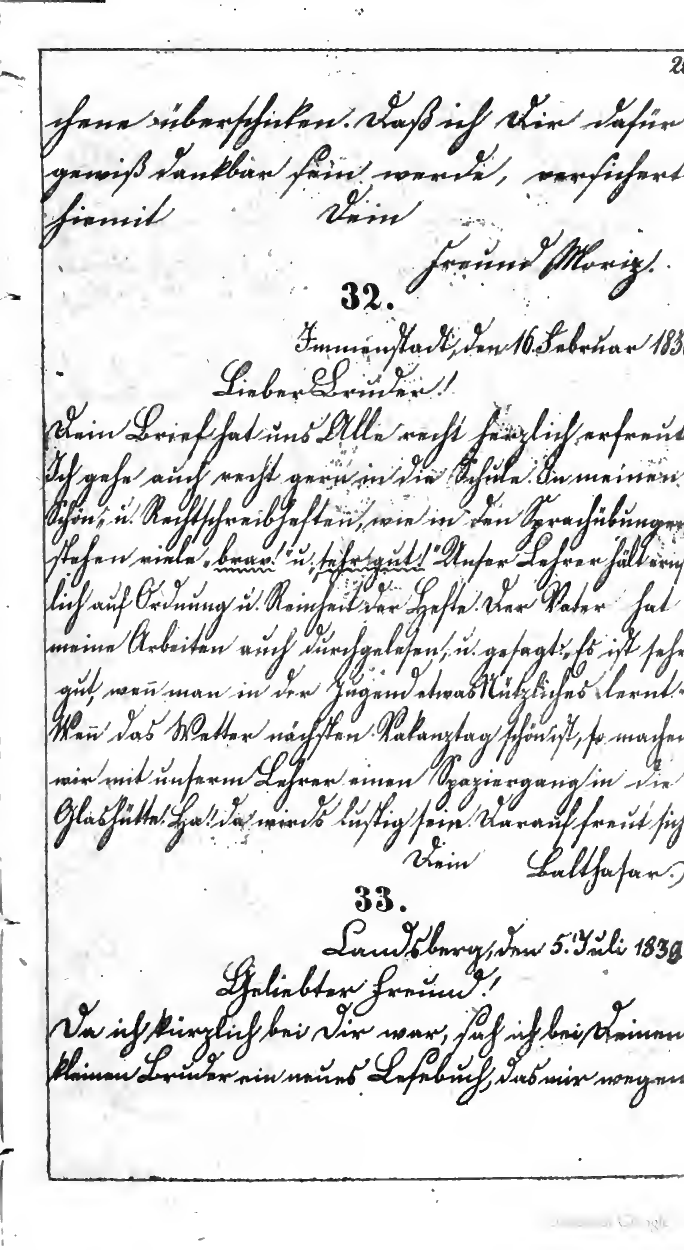 2
chene überschicken. Daß ich Dir dafür
gewiß dankbar sein werde, versichert
hiemit Dein
Freund Moriz.
32.
Immenstadt, den 16. Februar 183
Lieber Bruder!
Dein Brief hat uns Alle recht herzlich erfreut
Ich gehe auch recht gern in die Schule. In meinen
Schön- u. Rechtschreibheften, wie in den Sprachübungen
stehen viele „brav!“ u. „sehr gut!“ Unser Lehrer hält ernst
lich auf Ordnung u. Reinheit der Hefte. Der Vater hat
meine Arbeiten auch durchgelesen, u. gesagt: „Es ist sehr
gut, weñ man in der Jugend etwas Nützliches lernt.“
Weñ das Wetter nächsten Vakanztag schön ist, so machen
wir mit unserm Lehrer einen Spaziergang in die
Glashütte. Ha! da wirds lustig sein. Darauf freut sich
Dein Balthasar.
33.
Landsberg, den 5. Juli 1839
Geliebter Freund!
Da ich kürzlich bei Dir war, sah ich bei Deinem
kleinen Bruder ein neues Lesebuch, das mir wegen
Google